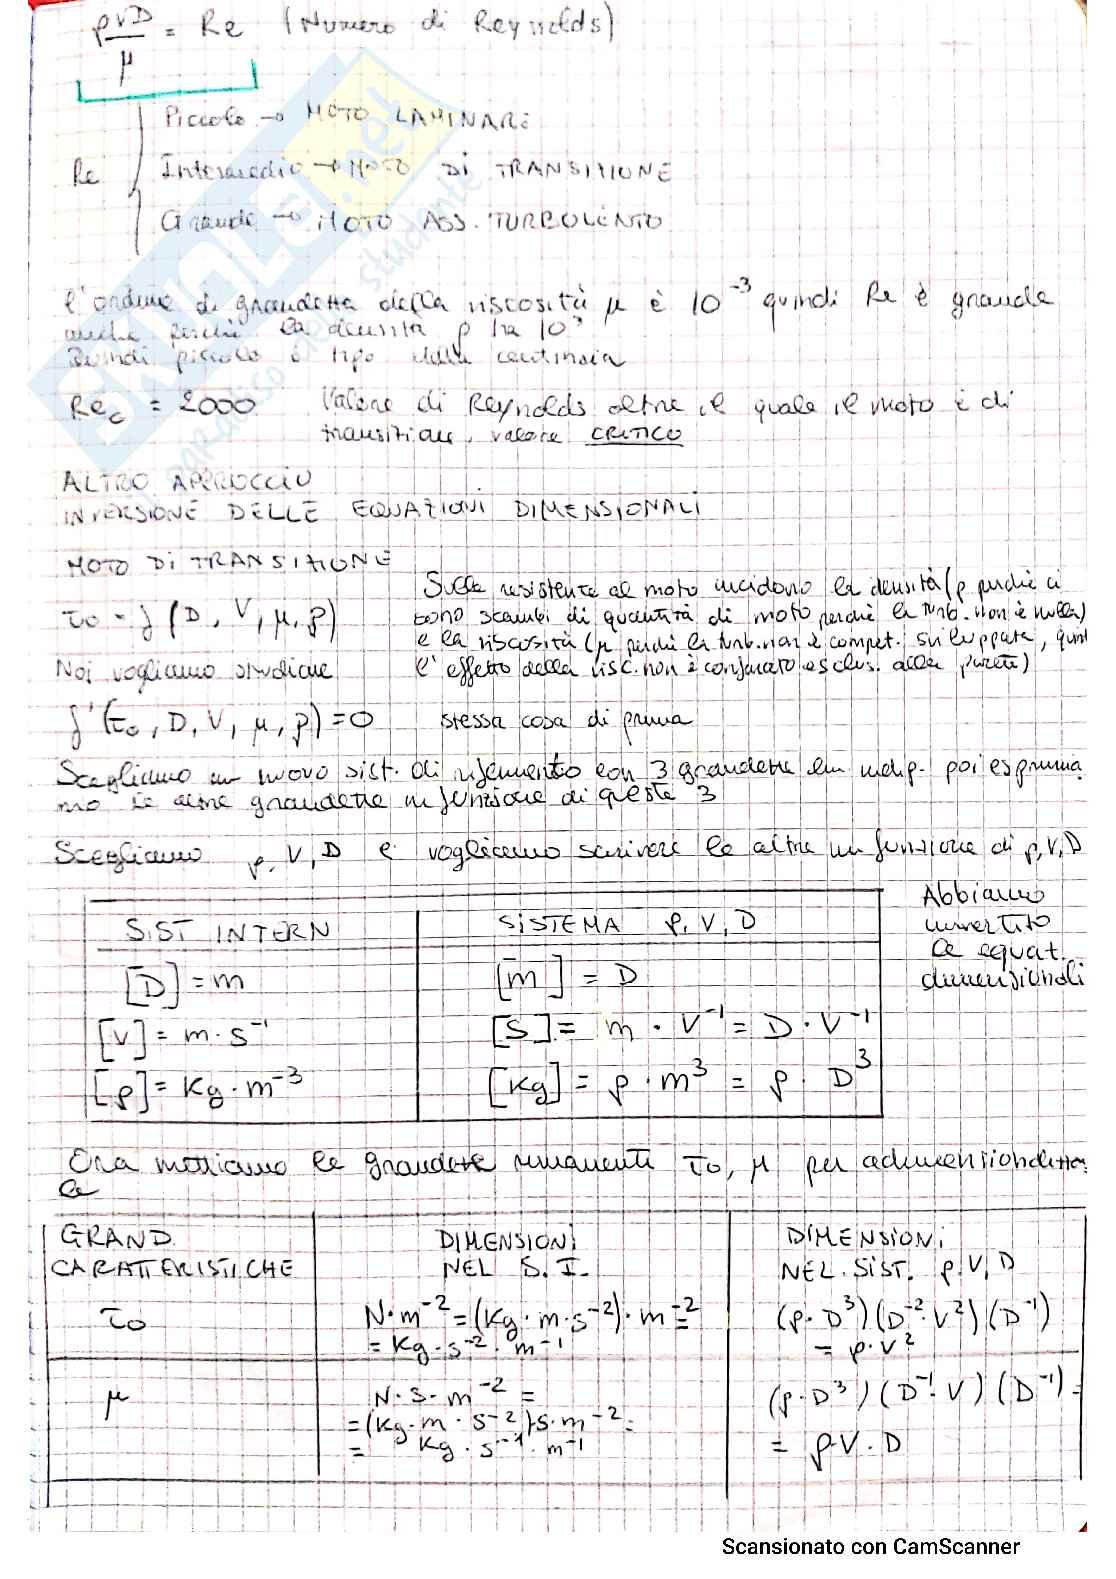 ρVD/μ = Re (Numero di Reynolds)
Re
Piccolo → MOTO LAMINARE
Intermedio → MOTO DI TRANSIZIONE
Grande → MOTO ASS. TURBOLENTO
l'ordine di grandezza della viscosità μ è 10⁻³ quindi Re è grande
anche perché la densità ρ ha 10³
Quindi piccolo è tipo delle centinaia
Re_c = 2000 Valore di Reynolds oltre il quale il moto è di
transizione, valore CRITICO
ALTRO APPROCCIO
INVERSIONE DELLE EQUAZIONI DIMENSIONALI
MOTO DI TRANSIZIONE
τ₀ = f (D, V, μ, ρ)
Sulle resistenze al moto incidono la densità (ρ perché ci
sono scambi di quantità di moto perché la turb. non è nulla)
e la viscosità (μ perché la turb. non è complet. sviluppata, quindi
l'effetto della visc. non è confinato esclus. alla parete)
Noi vogliamo studiare
f' (τ₀, D, V, μ, ρ) = 0 stessa cosa di prima
Scegliamo un nuovo sist. di riferimento con 3 grandezze lin. indip. poi esprimia
mo le altre grandezze in funzione di queste 3
Scegliamo ρ, V, D e vogliamo scrivere le altre in funzione di ρ, V, D
SIST INTERN | SISTEMA ρ, V, D
[D] = m | [m] = D
[V] = m · s⁻¹ | [s] = m · V⁻¹ = D · V⁻¹
[ρ] = Kg · m⁻³ | [Kg] = ρ · m³ = ρ · D³
Abbiamo
invertito
le equaz.
dimensionali
Ora mettiamo le grandezze rimanenti τ₀, μ per adimensionalizzar
le
GRAND. CARATTERISTICHE | DIMENSIONI NEL S.I. | DIMENSIONI NEL SIST. ρ, V, D
τ₀ | N·m⁻² = (Kg · m · s⁻²) · m⁻² = | (ρ · D³) (D⁻² · V²) (D⁻¹)
= Kg · s⁻² · m⁻¹ | = ρ · V²
μ | N · s · m⁻² = | (ρ · D³) (D⁻¹ · V) (D⁻¹) =
= (Kg · m · s⁻²) · s · m⁻² =
= Kg · s⁻¹ · m⁻¹ | = ρ · V · D
Scansionato con CamScanner